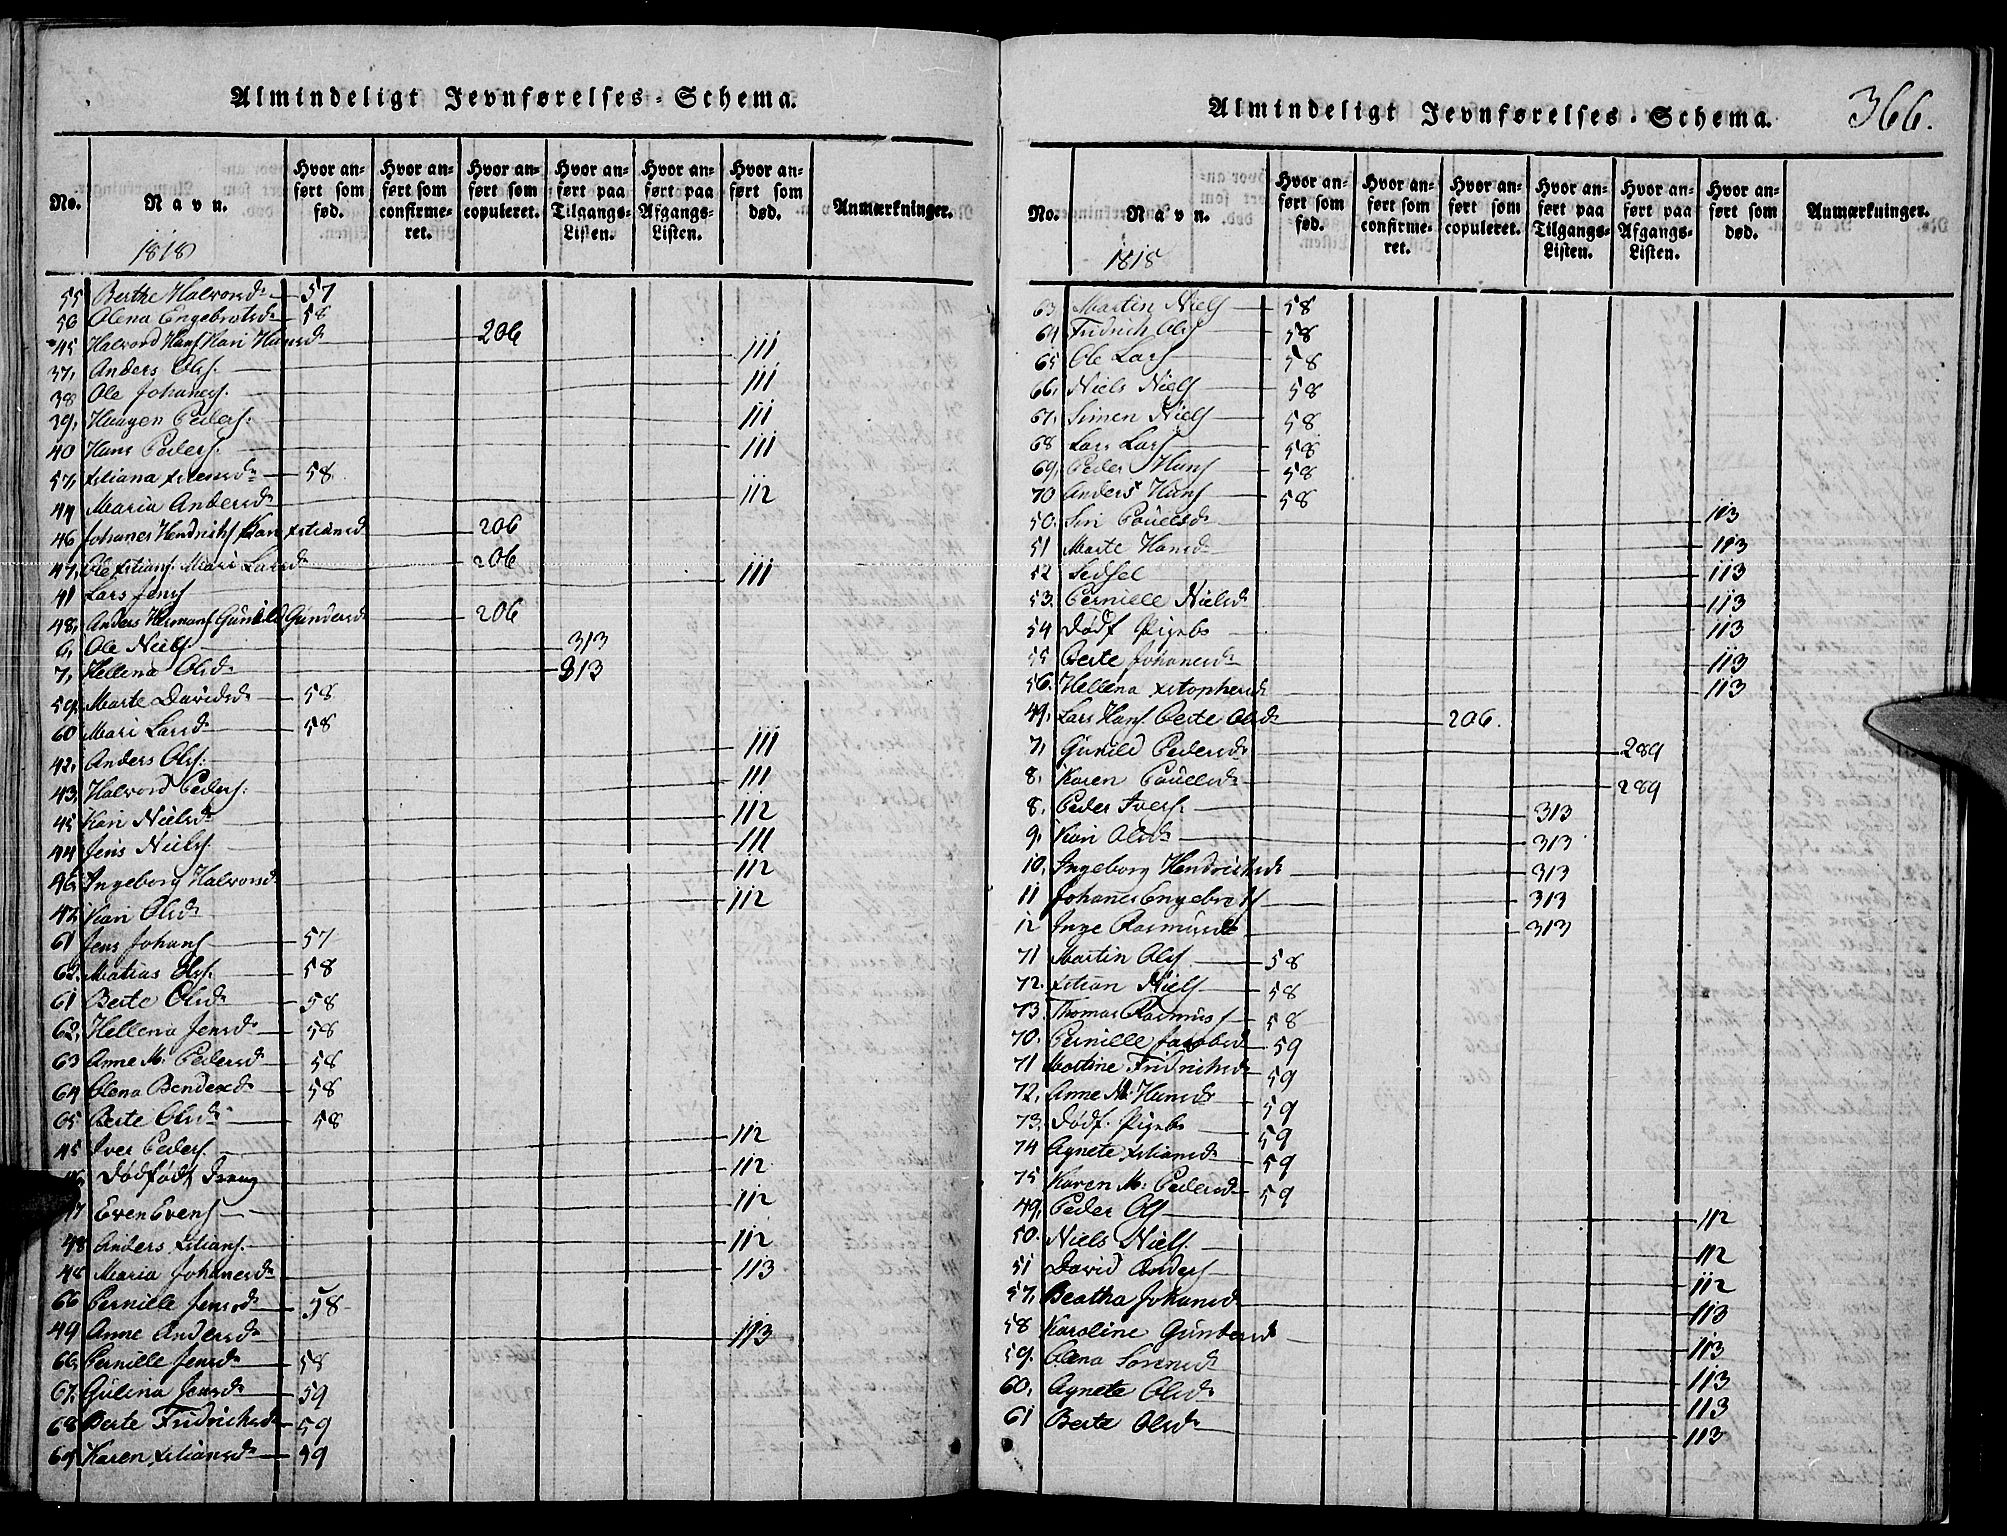 Almindeligt Jevnførelses-Schema.
No. Navn. Hvor anført som fød. Hvor anført som confirmeret. Hvor anført som copuleret. Hvor anført paa Tilgangs-Listen. Hvor anført paa Afgangs-Listen. Hvor anført som død. Anmærkninger.
1818
55 Berthe Halvorsd. 57
56 Olena Engebrotsd. 58
45 Halvord Hans Kari Hansd 206
37, Anders Ols. 111
38 Ole Johanes. 111
39, Haagen Peders. 111
40 Hans Peders. 111
57, xtiana xtensd. 58
44 Maria Andersd. 112
46 Johanes Hendrichs Kari xstiansd 206
47, Ole xtians. Mari Larsd. 206
41 Lars Jens 111
48, Anders Hermans Gunild Gundersd. 206
6, Ole Niels 313
7, Hellena Olsd. 313
59, Marte Davidsd. 58
60 Mari Larsd. 58
42, Anders Ols. 111
43, Halvord Peders. 111
45 Kari Nielsd. 112
44 Jens Niels. 111
46, Ingeborg Halvorsd. 112
47 Kari Olsd. 112
61 Jens Johans 57
62 Matias Ols. 58
61 Berte Olsd. 58
62, Hellena Jensd. 58
63 Anne M. Pedersd. 58
64 Olena Bendexd. 58
65 Berte Olsd. 58
45 Iver Peders. 112
46 Dødfødt Dreng 112
47 Even Evens 112
48 Anders xtians. 112
48 Maria Johanesd. 113
66 Pernille Jensd. 58
49 Anne Andersd. 113
66, Pernille Jensd. 58
67, Gulina Jensd. 59
68 Berte Fridrichsd. 59
69 Karen xtiansd. 59
366.
Almindeligt Jevnførelses-Schema.
No. Navn. Hvor anført som fød. Hvor anført som confirmeret. Hvor anført som copuleret. Hvor anført paa Tilgangs-Listen. Hvor anført paa Afgangs-Listen. Hvor anført som død. Anmærkninger.
1818
63 Martin Niels 58
64 Fridrich Ols 58
65 Ole Lars 58
66, Niels Niels 58
67, Simen Niels 58
68 Lars Lars 58
69, Peder Hans 58
70 Anders Hans 58
50. Siri Pouelsd. 113
51 Marte Hansd. 113
52 Sidsel 113
53. Pernille Nielsd. 113
54 Dødf. Pigebs 113
55 Berte Johanesd. 113
56. Hellena xstophersd. 113
49, Lars Hans. Berte Olsd. 206.
7, Gunild Pedersd. 289
8, Karen Pouelsd. 289
8. Peder Ivers. 313
9, Kari Olsd. 313
10, Ingeborg Hendrichsd. 313
11 Johanes Engebrots 313
12 Inge Rasmusd. 313
71 Martin Ols. 58
72. xstian Niels 58
73. Thomas Rasmus 58
70. Pernille Jacobsd. 59
71 Martine Fridrichsd. 59
72, Anne M. Hansd. 59
73, Dødf. Pigebs 59
74 Agnete xtiansd. 59
75 Karen M. Pedersd. 59
49, Peder Ols 112
50. Niels Niels. 112
51 David Anders 112
57, Beatha Johansd. 113
58 Karoline Gundersd. 113
59. Olena Sørensd. 113
60, Agnete Olsd. 113
61 Berte Olsd. 113